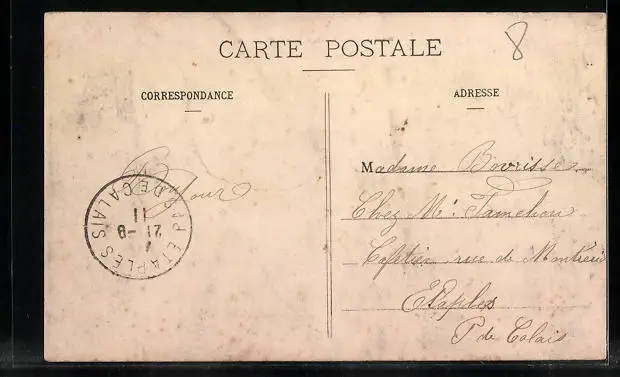 8
CARTE POSTALE
CORRESPONDANCE
ADRESSE
Bonjour
Madame Bovrisse
Chez Mr. Famchon
Cafetier rue de Montreuil
Etaples
P de Calais
ETAPLES PAS DE CALAIS
21 - 8
11